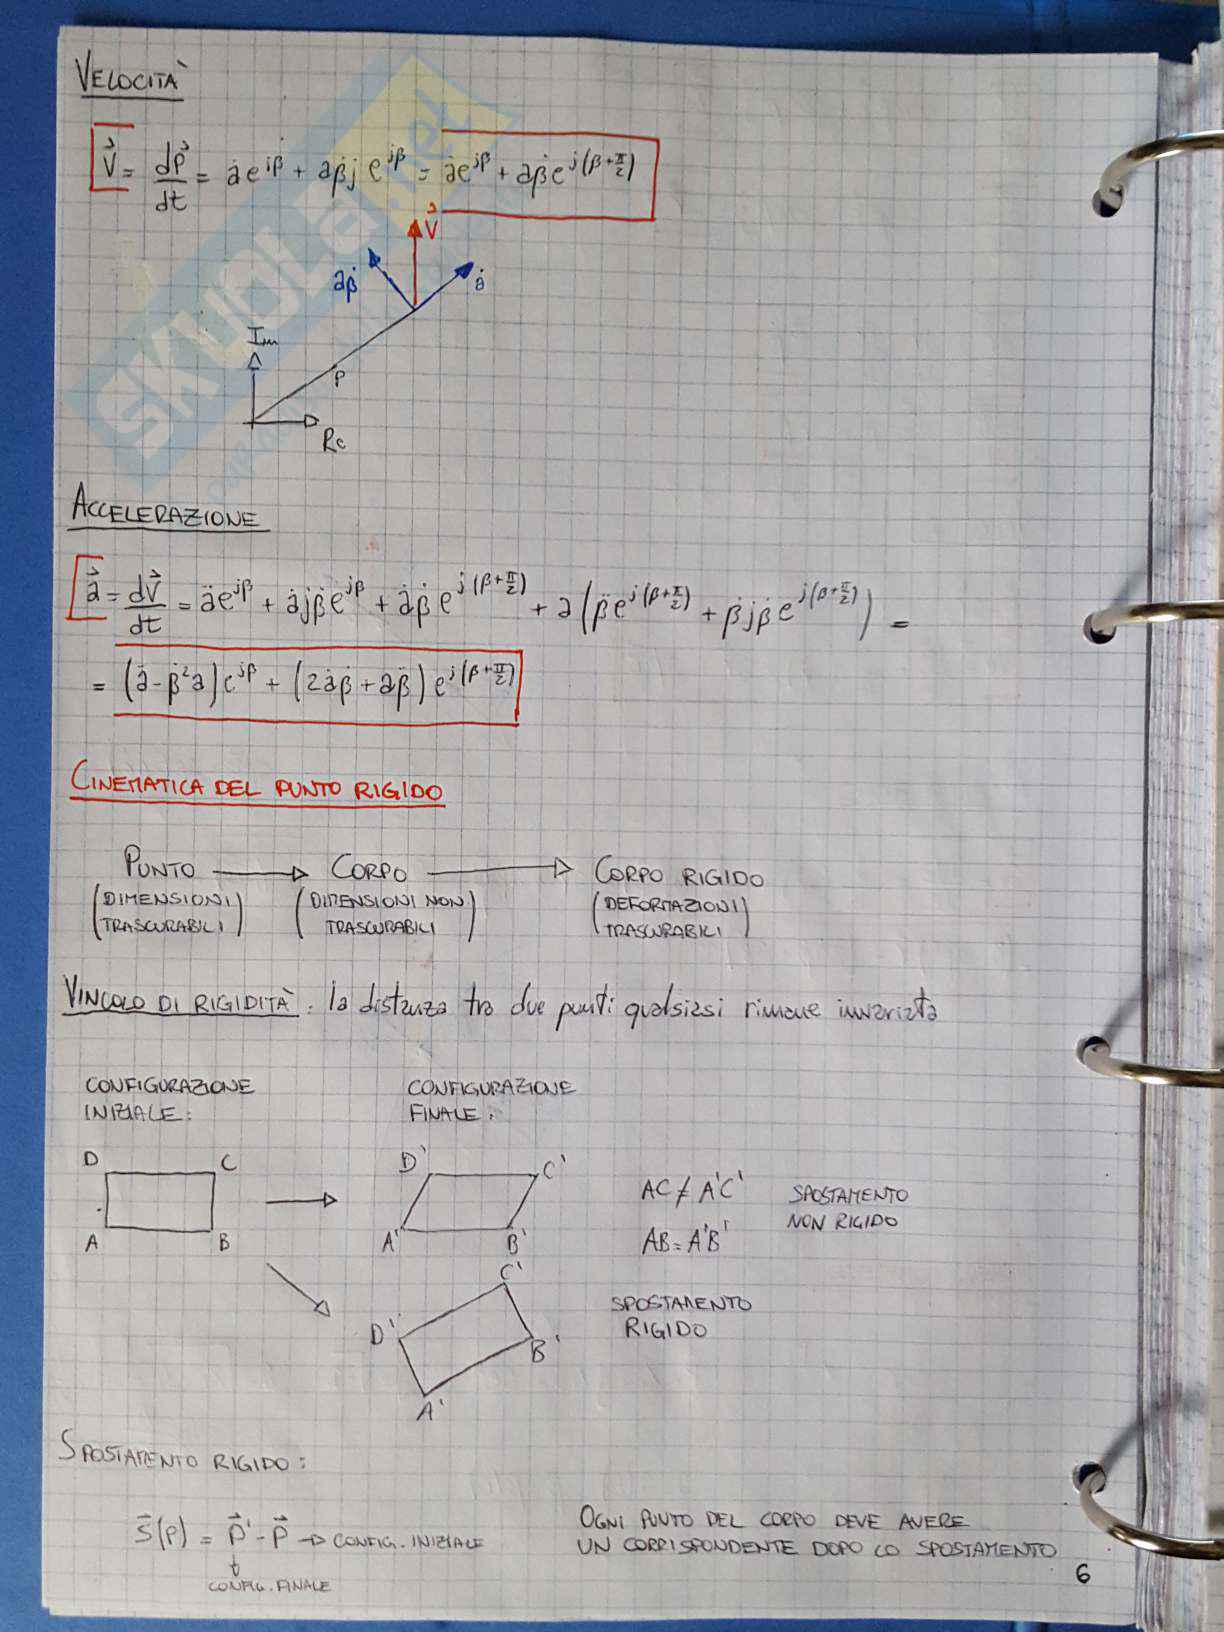 VELOCITÀ
V⃗ = dP⃗/dt = ȧe^{jβ} + aβ̇j e^{jβ} = ȧe^{jβ} + aβ̇e^{j(β+π/2)}
V⃗
aβ̇
ȧ
Im
P
Re
SKUOLA.net
ACCELERAZIONE
a⃗ = dV⃗/dt = äe^{jβ} + ȧjβ̇e^{jβ} + ȧβ̇e^{j(β+π/2)} + a(β̈e^{j(β+π/2)} + β̇jβ̇e^{j(β+π/2)}) =
= (ä-β̇²a)e^{jβ} + (2ȧβ̇ + aβ̈)e^{j(β+π/2)}
CINEMATICA DEL PUNTO RIGIDO
PUNTO → CORPO → CORPO RIGIDO
(DIMENSIONI (DIMENSIONI NON (DEFORMAZIONI
TRASCURABILI) TRASCURABILI) TRASCURABILI)
VINCOLO DI RIGIDITÀ: la distanza tra due punti qualsiasi rimane invariata
CONFIGURAZIONE CONFIGURAZIONE
INIZIALE: FINALE:
D C D' C'
AC ≠ A'C' SPOSTAMENTO
NON RIGIDO
A B A' B' AB = A'B'
C'
SPOSTAMENTO
RIGIDO
D' B'
A'
SPOSTAMENTO RIGIDO:
S⃗(P) = P⃗' - P⃗ → CONFIG. INIZIALE
↓
CONFIG. FINALE
OGNI PUNTO DEL CORPO DEVE AVERE
UN CORRISPONDENTE DOPO LO SPOSTAMENTO
6